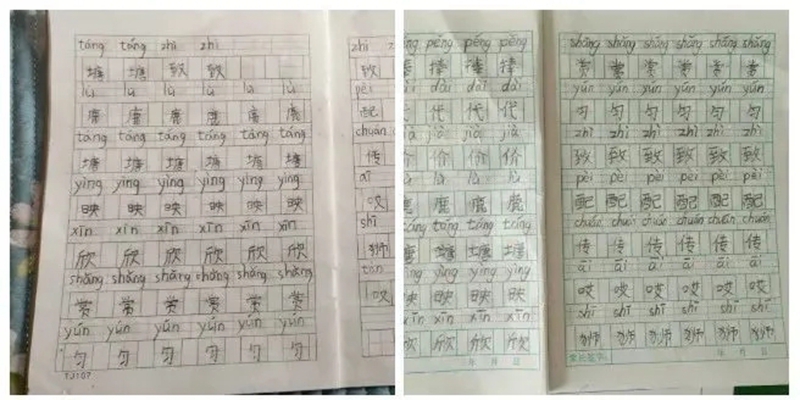 táng táng zhì zhì
塘 塘 致 致
lù lù lù lù lù lù
鹿 鹿 鹿 鹿 鹿 鹿
táng táng táng táng táng táng
塘 塘 塘 塘 塘 塘
yìng yìng yìng yìng yìng yìng
映 映 映 映 映 映
xīn xīn xīn xīn xīn xīn
欣 欣 欣 欣 欣 欣
shǎng shǎng shǎng shǎng shǎng shǎng
赏 赏 赏 赏 赏 赏
yún yún yún yún yún yún
匀 匀 匀 匀 匀 匀
TJ107
zhì
致
pèi
配
chuán
传
āi
哎
shī
狮
哎
pěng pěng pěng
捧 捧 捧
dài dài
代 代 代
jià jià jià
价 价 价
lù lù lù
鹿 鹿 鹿
táng táng táng
塘 塘 塘
yìng yìng yìng
映 映 映
xīn xīn xīn
欣 欣 欣
年 月 日
shǎng shǎng shǎng shǎng shǎng shǎng
赏 赏 赏 赏 赏 赏
yún yún yún yún yún yún
匀 匀 匀 匀 匀 匀
zhì zhì zhì zhì zhì zhì
致 致 致 致 致 致
pèi pèi pèi pèi pèi pèi
配 配 配 配 配 配
chuán chuán chuán chuán chuán chuán
传 传 传 传 传 传
āi āi āi āi āi āi
哎 哎 哎 哎 哎 哎
shī shī shī shī shī shī
狮 狮 狮 狮 狮 狮
家长签字: 年 月 日